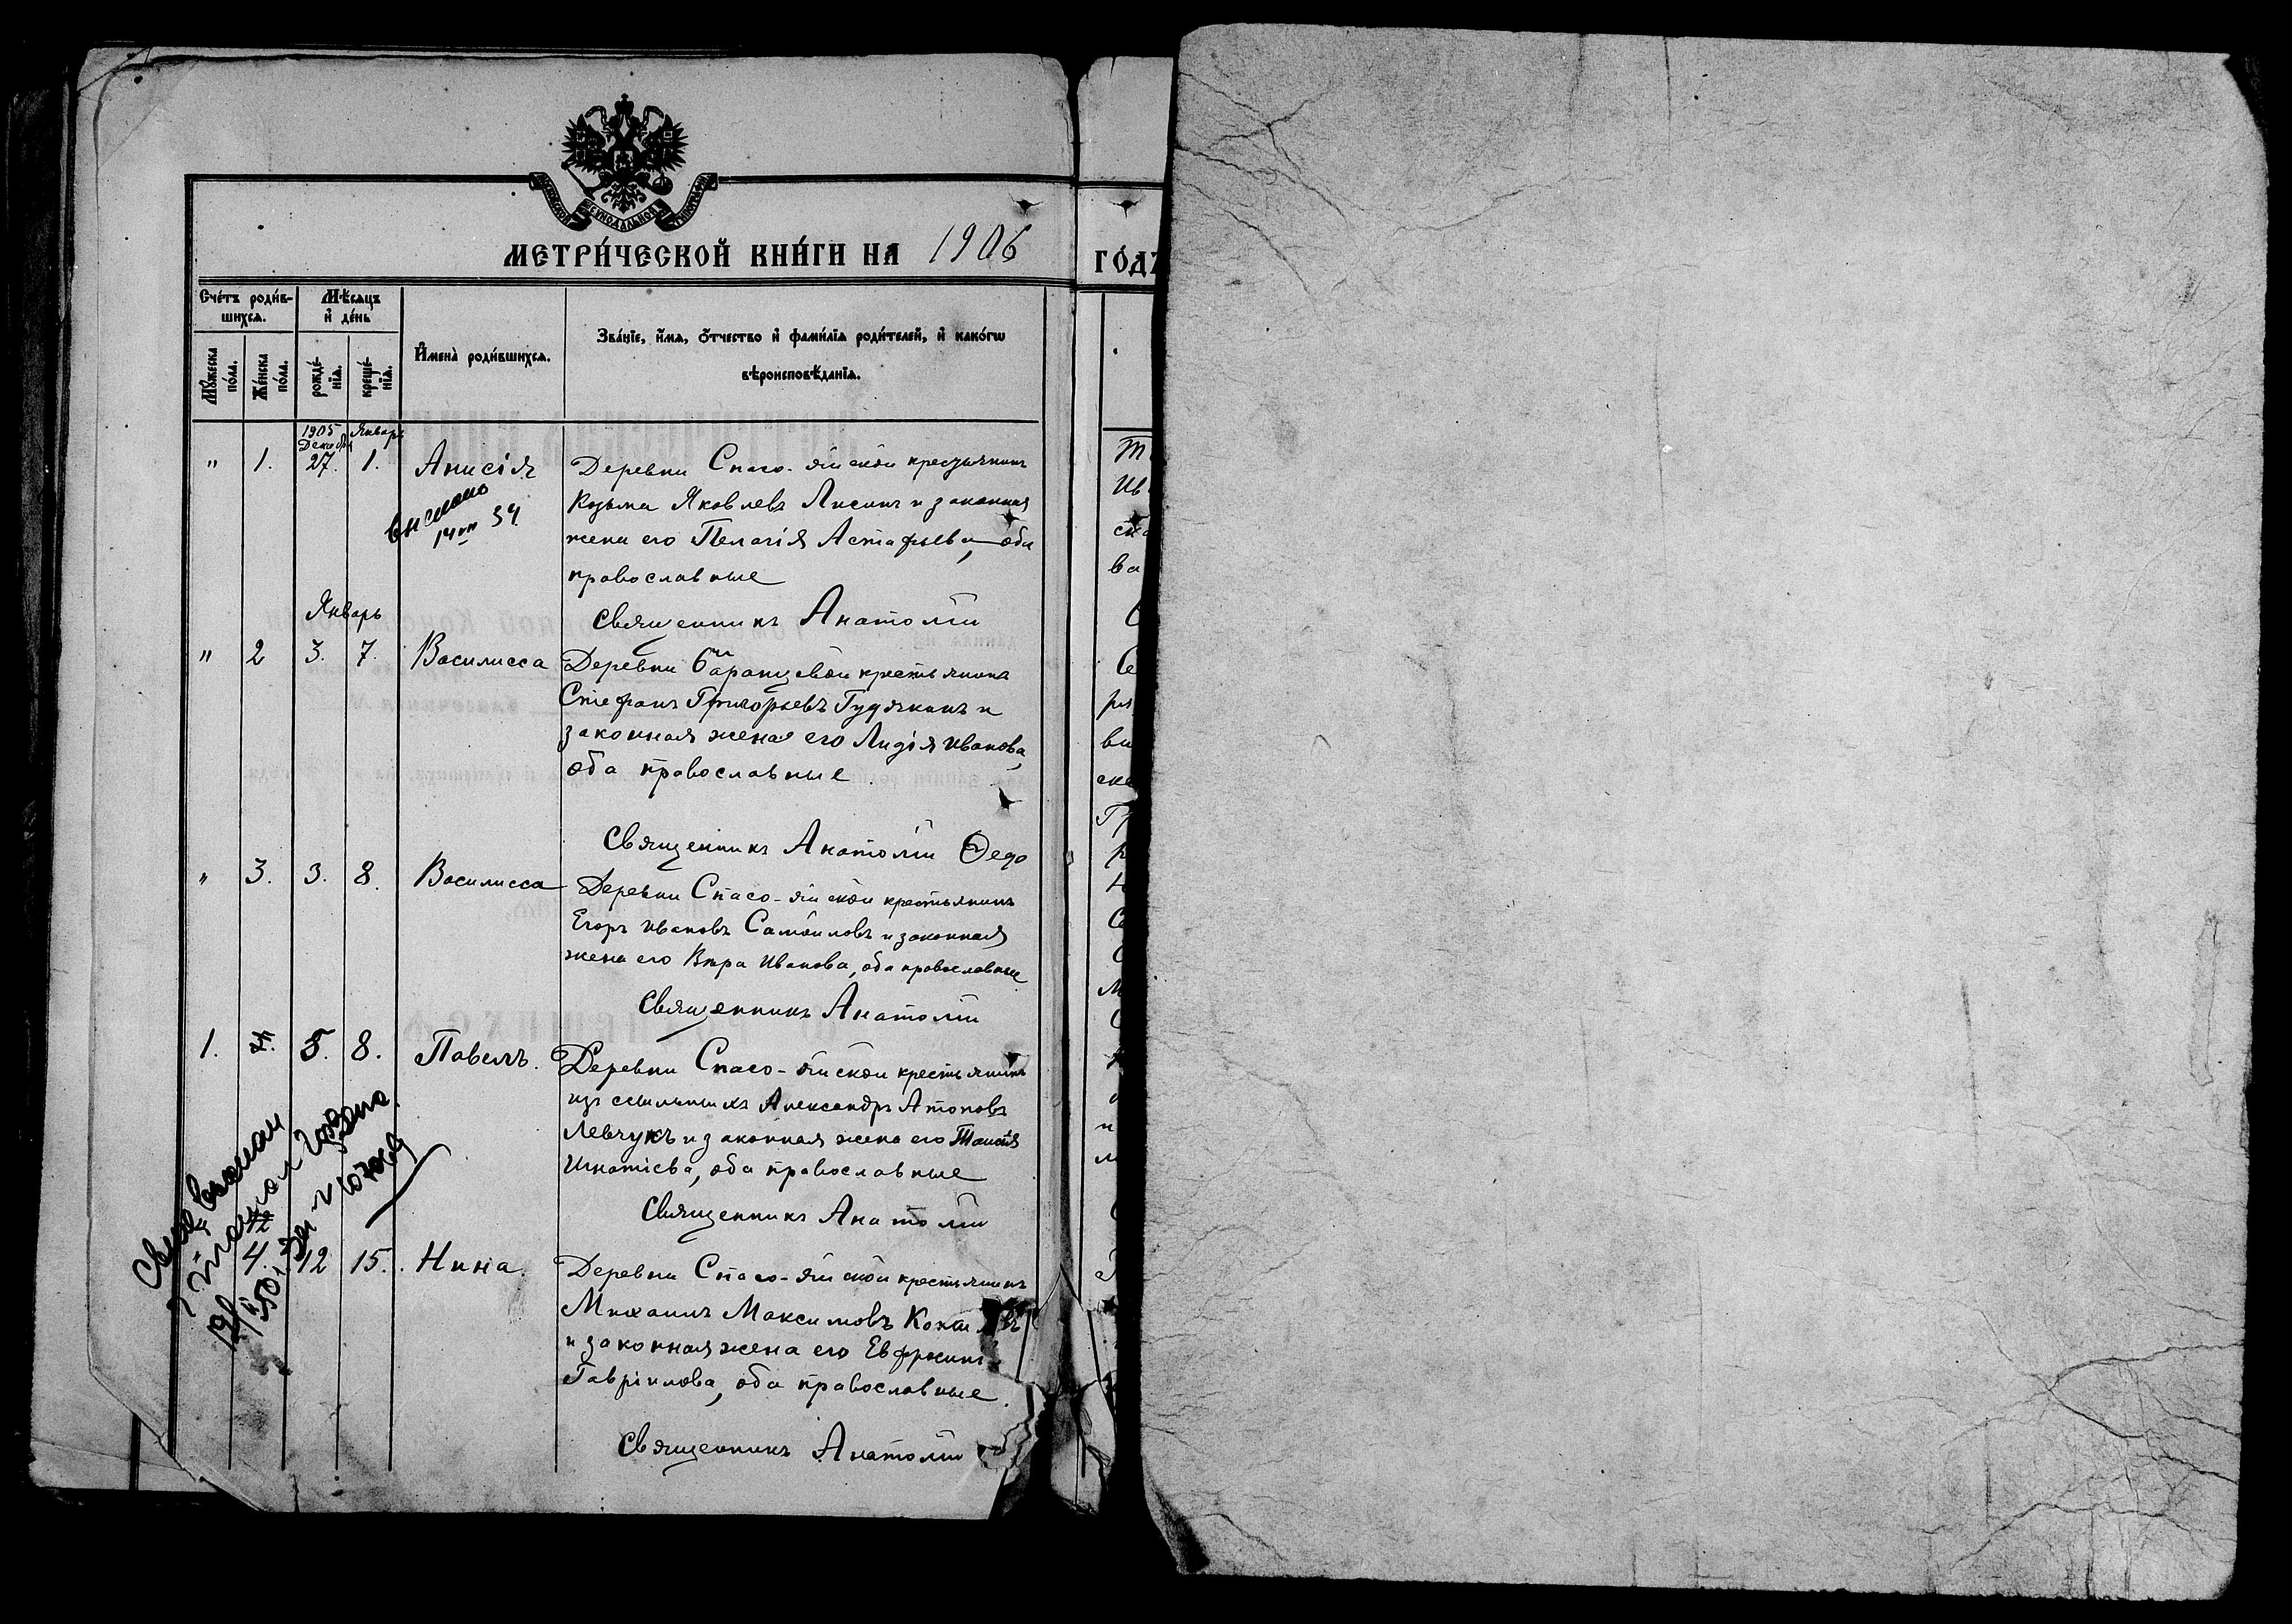 МОСКОВСКОЙ СѴНОДАЛЬНОЙ ТИПОГРАФІИ
МЕТРИ́ЧЕСКОЙ КНИ́ГИ НА 1906
ГО́ДЪ
Сче́тъ роди́в-
шихся.
Мѣ́сяцъ
и҆ де́нь
Мꙋ́жеска
по́ла.
Же́нска
по́ла.
рожде́-
нїя.
креще́-
нїя.
И҆мена̀ роди́вшихся.
Зва́нїе, и҆́мя, ѻ҆́тчество и҆ фами́лїя роди́телей, и҆ како́гѡ
вѣроисповѣ́данїя.
1905 Январь
Декабря
" 1. 27. 1. Анисія
Деревни Спасо-Яйской крестьянинъ
Козьма Яковлевъ Лисинъ и законная
жена его Пелагія Астафьева, оба
православные
14 VII 34
Священникъ Анатолій
Январь
" 2 3. 7. Василисса
Деревни Баранцевой крестьянинъ
Стефанъ Григорьевъ Гудянинъ и
законная жена его Лидія Иванова,
оба православные.
Священникъ Анатолій Ѳедо
" 3. 3. 8. Василисса
Деревни Спасо-Яйской крестьянинъ
Егоръ Ивановъ Самойловъ и законная
жена его Вѣра Иванова, оба православные
Священникъ Анатолій
1. 4. 5. 8. Павелъ.
Деревни Спасо-Яйской крестьянинъ
изъ ссыльныхъ Александръ Атоновъ
Левчукъ и законная жена его Таисія
Игнатіева, оба православные
Священникъ Анатолій
" 4. 12 15. Нина.
Деревни Спасо-Яйской крестьянинъ
Михаилъ Максимовъ
и законная жена его
Гавріилова, оба православные.
Священникъ Анатолій